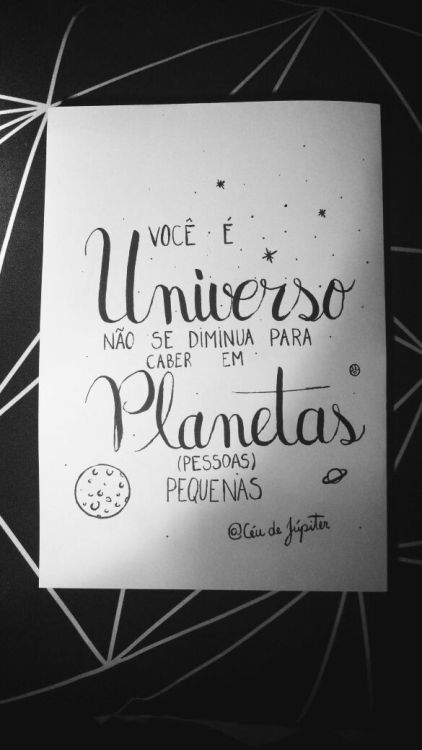 VOCÊ É
Universo
NÃO SE DIMINUA PARA
CABER EM
Planetas
(PESSOAS)
PEQUENAS
@Céu de Júpiter